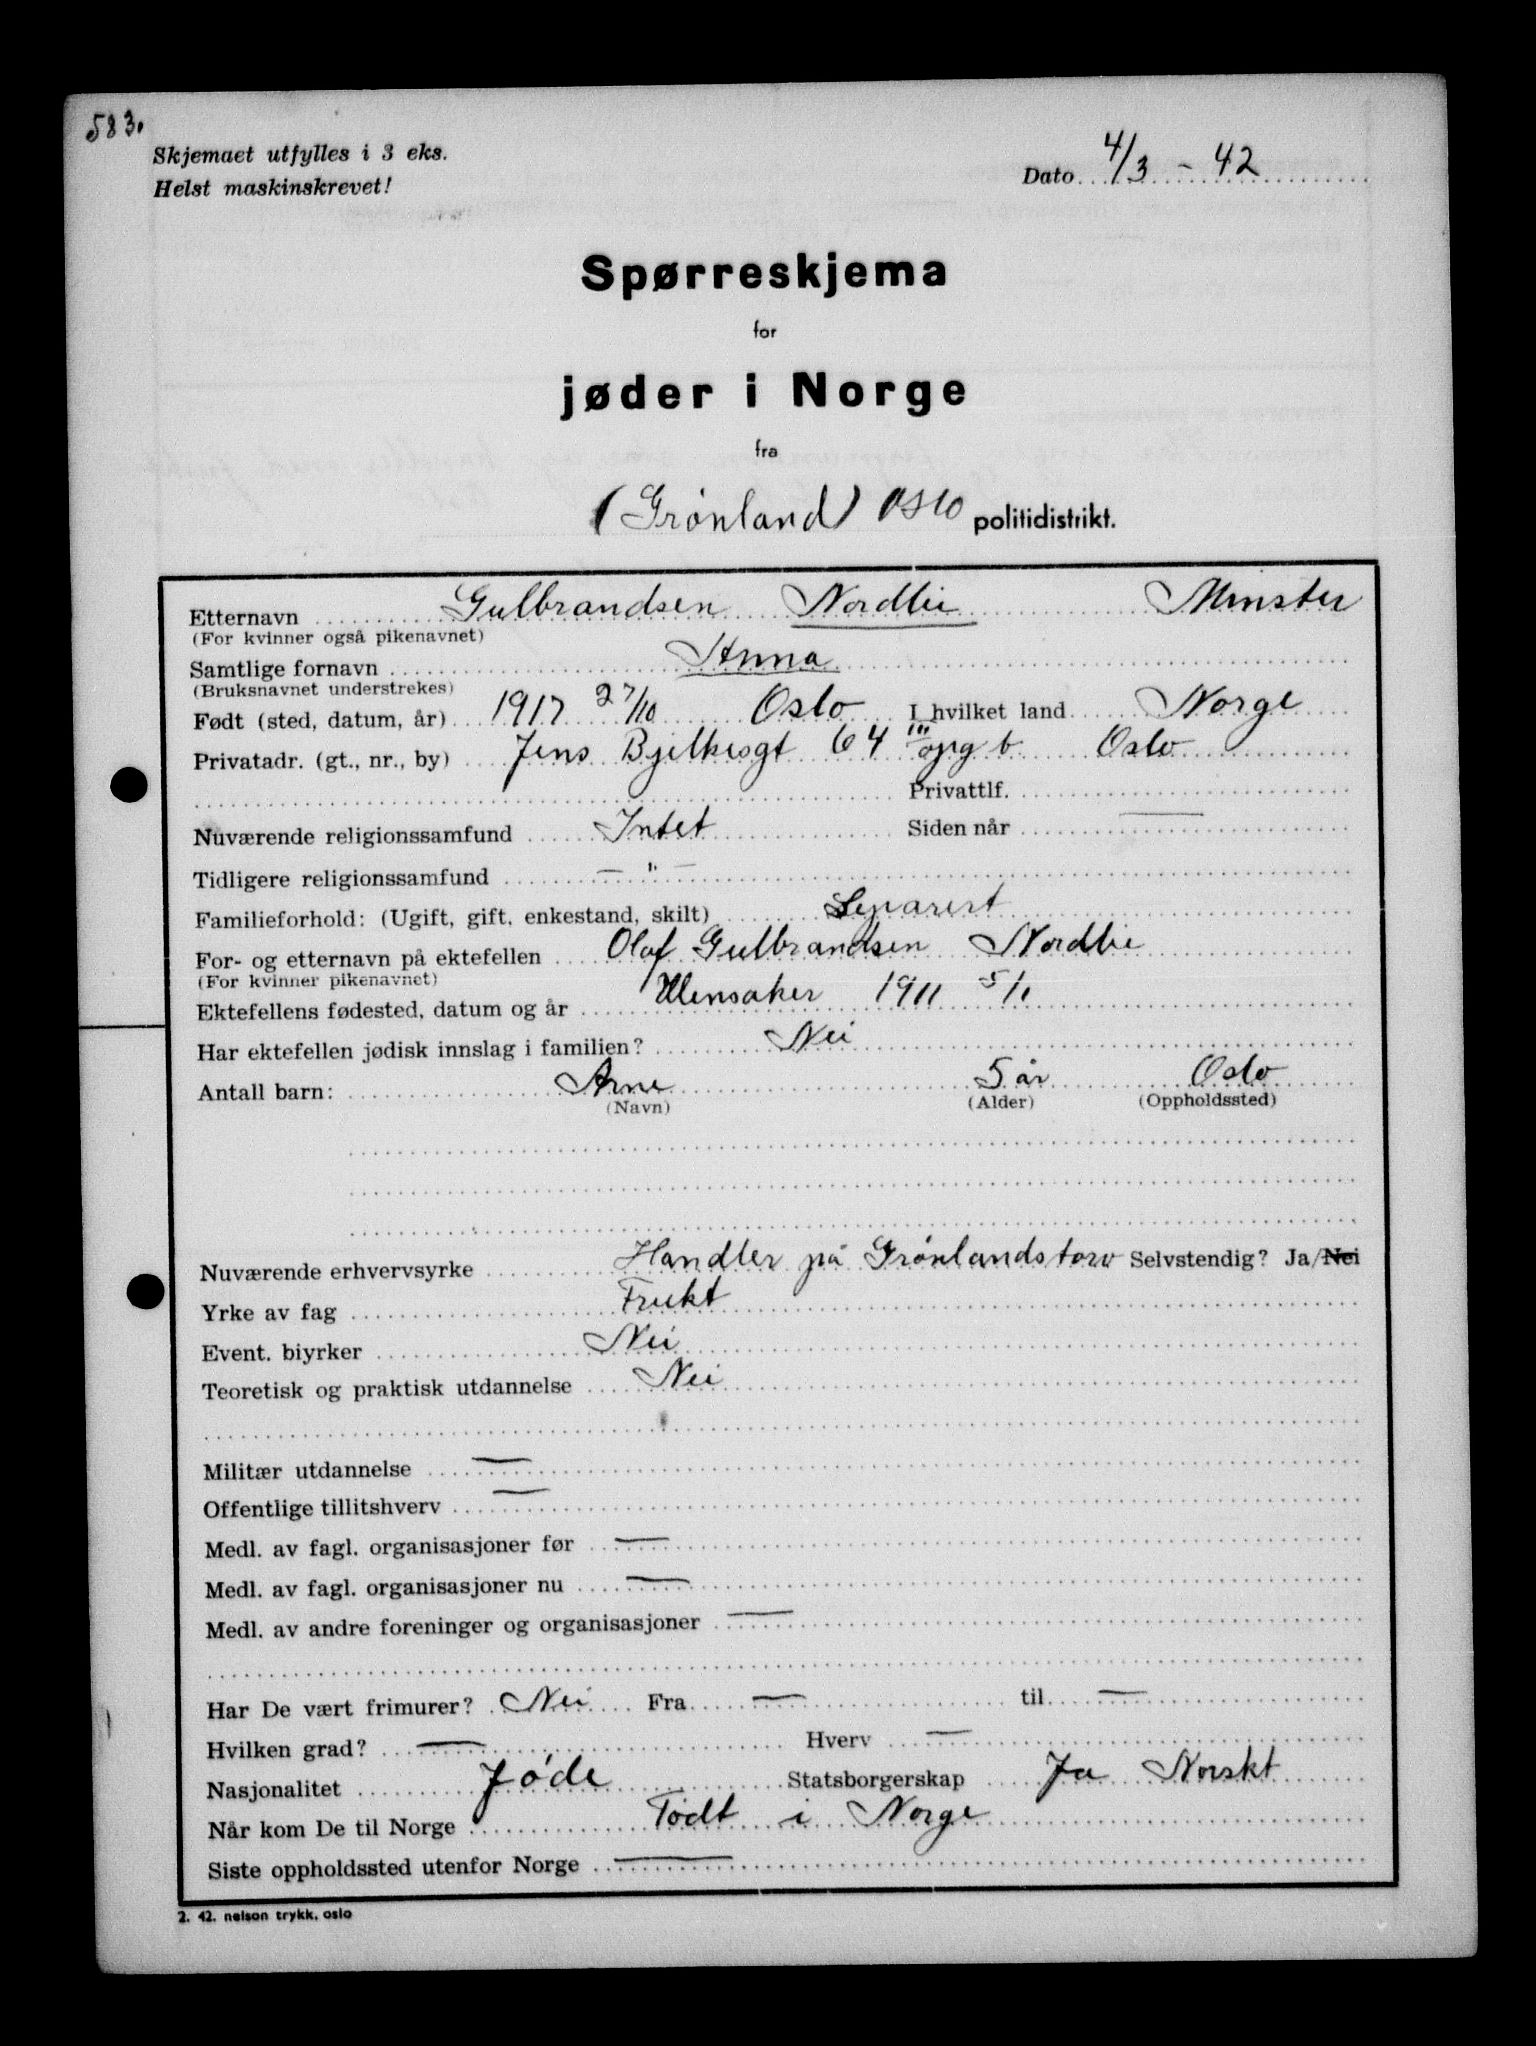 583.
Skjemaet utfylles i 3 eks.
Helst maskinskrevet!
Dato 4/3 - 42
Spørreskjema
for
jøder i Norge
fra
(Grønland) Oslo politidistrikt.
Etternavn Gulbrandsen Nordlie Minster
(For kvinner også pikenavnet)
Samtlige fornavn Anna
(Bruksnavnet understrekes)
Født (sted, datum, år) 1917 27/10 Oslo I hvilket land Norge
Privatadr. (gt., nr., by) Jens Bjelkesgt 64 III opg b Oslo
Privattlf.
Nuværende religionssamfund Intet Siden når —
Tidligere religionssamfund — " —
Familieforhold: (Ugift, gift, enkestand, skilt) Separert
For- og etternavn på ektefellen Olaf Gulbrandsen Nordlie
(For kvinner pikenavnet)
Ektefellens fødested, datum og år Ullensaker 1911 5/1
Har ektefellen jødisk innslag i familien? Nei
Antall barn: Arne 5 år Oslo
(Navn) (Alder) (Oppholdssted)
Nuværende erhvervsyrke Handler på Grønlandstorv Selvstendig? Ja/Nei
Yrke av fag Frukt
Event. biyrker Nei
Teoretisk og praktisk utdannelse Nei
Militær utdannelse —
Offentlige tillitshverv —
Medl. av fagl. organisasjoner før —
Medl. av fagl. organisasjoner nu —
Medl. av andre foreninger og organisasjoner —
Har De vært frimurer? Nei Fra — til —
Hvilken grad? — Hverv —
Nasjonalitet Jøde Statsborgerskap Ja Norskt
Når kom De til Norge Født i Norge
Siste oppholdssted utenfor Norge —
2. 42. nelson trykk, oslo